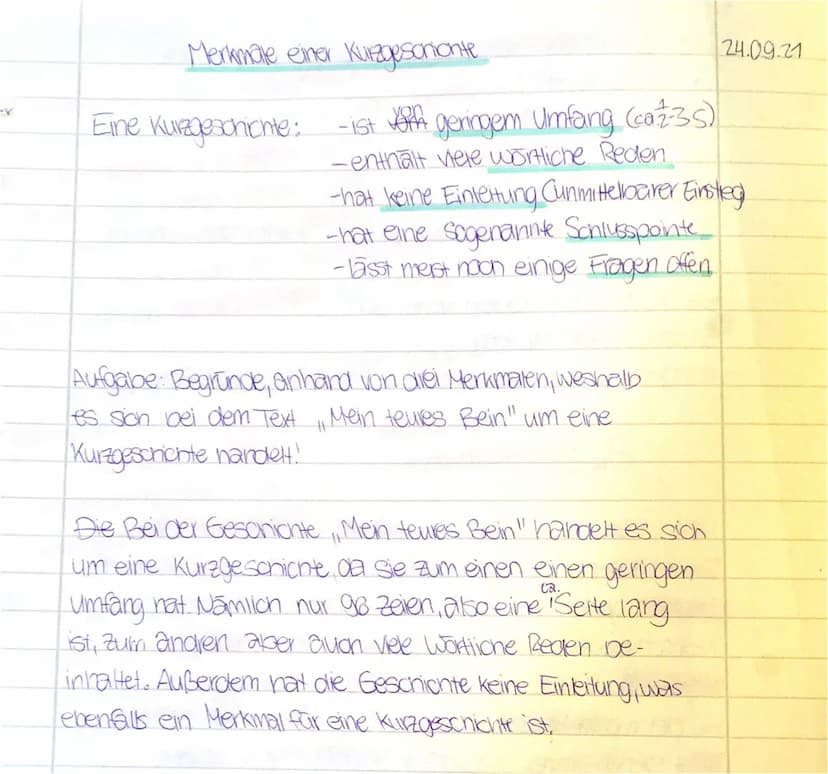 Merkmale einer Kurzgeschichte 24.09.21
Eine Kurzgeschichte: -ist geringem Umfang (ca 1/2-3 S)
-enthält viele wörtliche Reden
-hat keine Einleitung (unmittelbarer Einstieg)
-hat eine sogenannte Schlusspointe
-lässt meist noch einige Fragen offen
Aufgabe: Begründe, anhand von drei Merkmalen, weshalb
es sich bei dem Text „Mein teures Bein" um eine
Kurzgeschichte handelt!
Die Bei der Geschichte „Mein teures Bein" handelt es sich
um eine Kurzgeschichte, da sie zum einen einen geringen
Umfang hat. Nämlich nur 98 Zeilen, also eine ca. Seite lang
ist, zum andren aber auch viele Wörtliche Reden be-
inhaltet. Außerdem hat die Geschichte keine Einleitung, was
ebenfalls ein Merkmal für eine Kurzgeschichte ist.